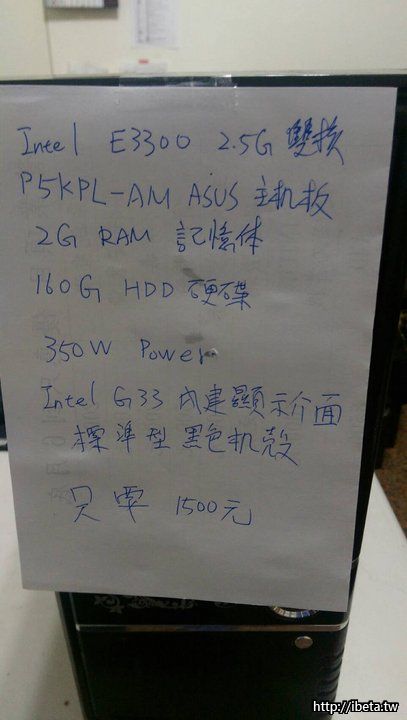 Intel E3300 2.5G 雙核
P5KPL-AM ASUS 主机板
2G RAM 記憶体
160G HDD 硬碟
350W Power
Intel G33 内建顯示介面
標準型黑色机殼
只要 1500元
http://ibeta.tw